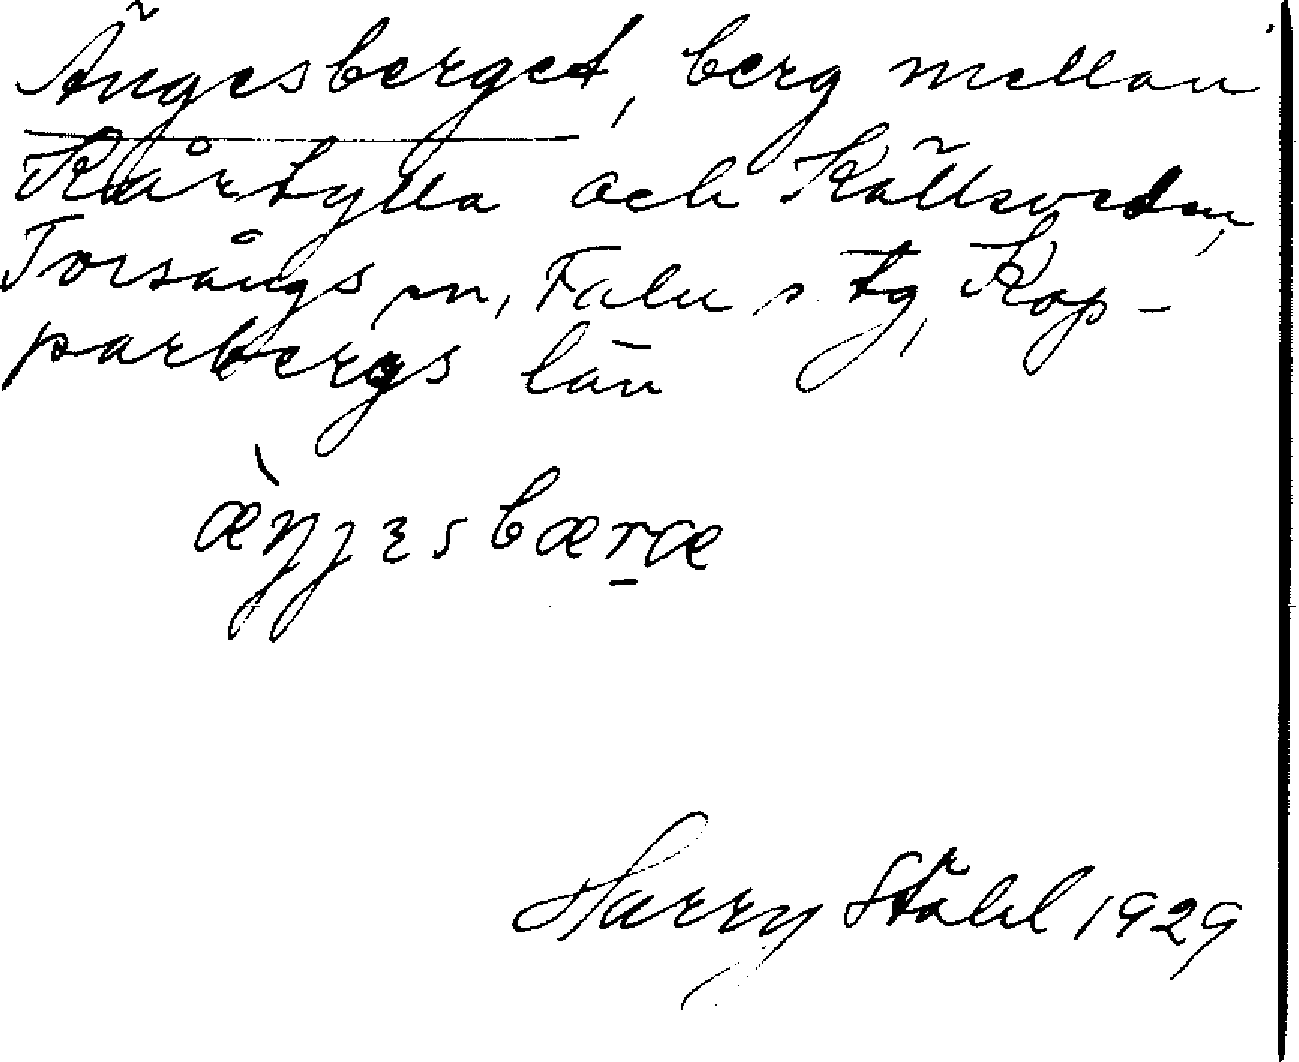 Ängesberget, berg mellan
Kårtylla och Källsveden,
Torsångs sn, Falu s. tg, Kop-
parbergs län
æ̀ŋjesbæræ
Harry Ståhl 1929